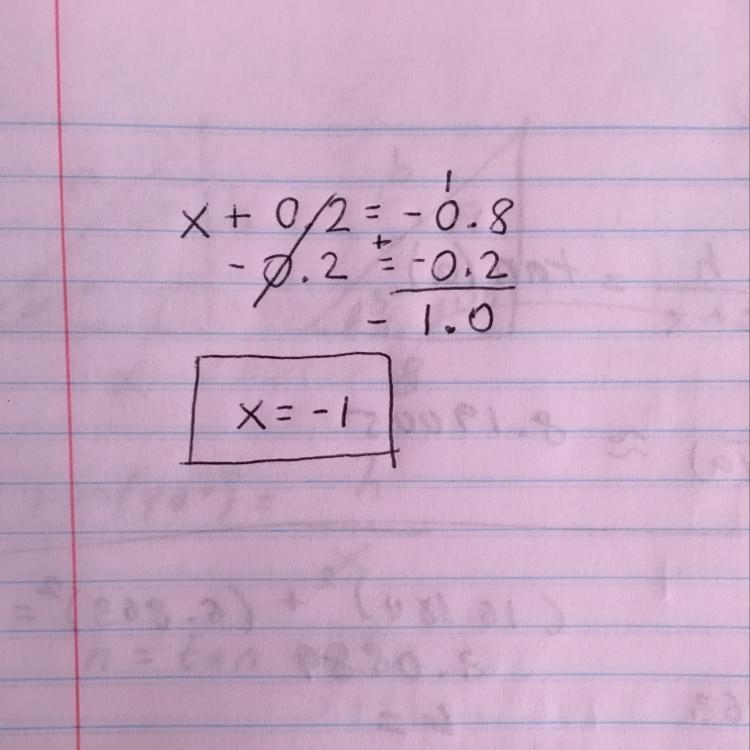 1
x + 0.2 = -0.8
- 0.2 += -0.2
- 1.0
x = -1